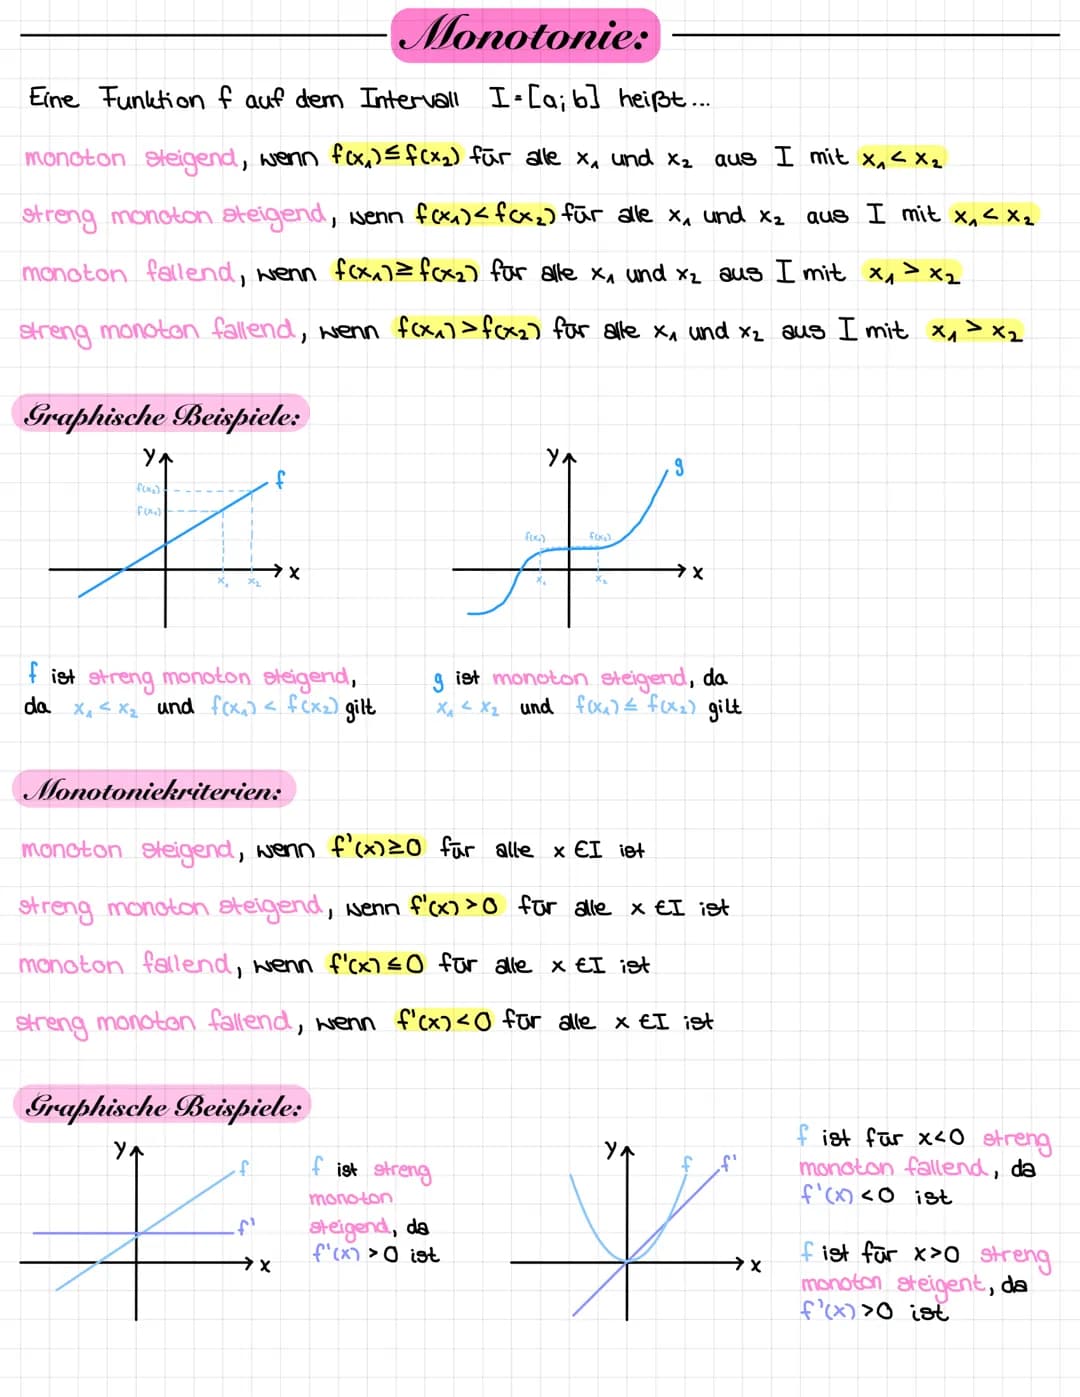 Monotonie:
Eine Funktion f auf dem Intervall I=[a;b] heißt...
monoton steigend, wenn f(x₁)≤f(x₂) für alle x₁ und x₂ aus I mit x₁<x₂
streng monoton steigend, wenn f(x₁)<f(x₂) für alle x₁ und x₂ aus I mit x₁<x₂
monoton fallend, wenn f(x₁)≥f(x₂) für alle x₁ und x₂ aus I mit x₁>x₂
streng monoton fallend, wenn f(x₁)>f(x₂) für alle x₁ und x₂ aus I mit x₁>x₂
Graphische Beispiele:
y
f
f(x₂)
f(x₁)
x₁ x₂
x
y
g
f(x₁) f(x₂)
x₁ x₂
x
f ist streng monoton steigend,
da x₁<x₂ und f(x₁)<f(x₂) gilt
g ist monoton steigend, da
x₁<x₂ und f(x₁)≤f(x₂) gilt
Monotoniekriterien:
monoton steigend, wenn f'(x)≥0 für alle x∈I ist
streng monoton steigend, wenn f'(x)>0 für alle x∈I ist
monoton fallend, wenn f'(x)≤0 für alle x∈I ist
streng monoton fallend, wenn f'(x)<0 für alle x∈I ist
Graphische Beispiele:
y
f
f'
x
f ist streng
monoton
steigend, da
f'(x)>0 ist
y
f f'
x
f ist für x<0 streng
monoton fallend, da
f'(x)<0 ist
f ist für x>0 streng
monoton steigent, da
f'(x)>0 ist